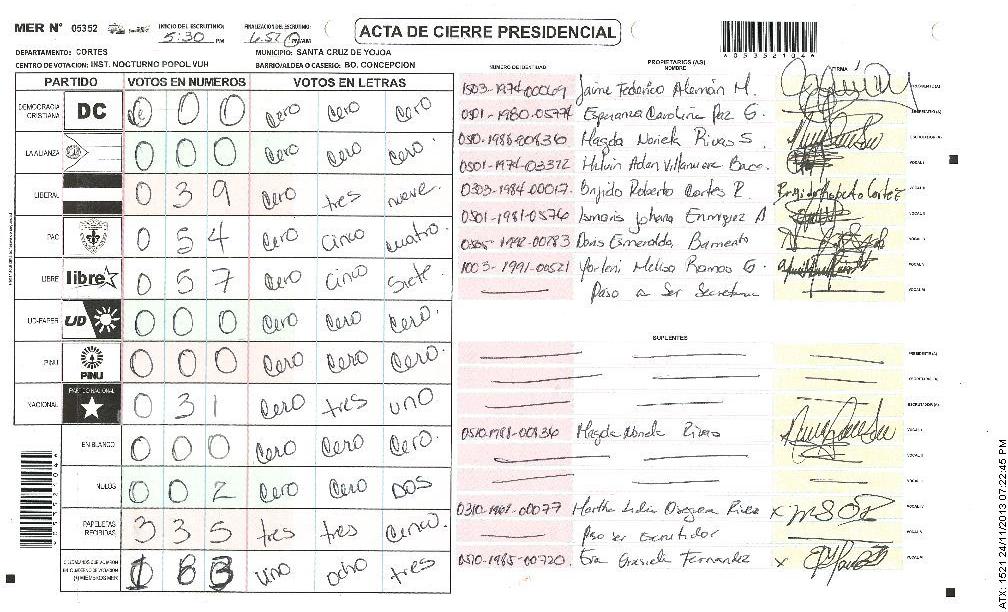 MER N° 05352 INICIO DEL ESCRUTINIO: 5:30 PM FINALIZACION DEL ESCRUTINIO: PM
ACTA DE CIERRE PRESIDENCIAL
*05352104*
DEPARTAMENTO: CORTES MUNICIPIO: SANTA CRUZ DE YOJOA
CENTRO DE VOTACION: INST. NOCTURNO POPOL VUH BARRIO/ALDEA O CASERIO: BO. CONCEPCION
PARTIDO VOTOS EN NUMEROS VOTOS EN LETRAS
DEMOCRACIA CRISTIANA DC 0 0 0 Cero Cero Cero
LA ALIANZA 0 0 0 Cero Cero Cero.
LIBERAL 0 3 9 Cero tres nueve.
PAC 0 5 4 Cero Cinco Cuatro.
LIBRE libre 0 5 7 Cero Cinco Siete
UD-FAPER UD 0 0 0 Cero Cero Cero.
PINU PINU 0 0 0 Cero Cero Cero.
NACIONAL PARTIDO NACIONAL 0 3 1 Cero tres uno
EN BLANCO 0 0 0 Cero Cero Cero.
NULOS 0 0 2 Cero Cero DOS
PAPELETAS RECIBIDAS 3 3 5 tres tres Cinco.
1 8 3 uno ocho tres
NUMERO DE IDENTIDAD PROPIETARIOS (AS) NOMBRE FIRMA
1503-1974-00069 Jaime Federico Alemán M.
0501-1980-05774 Esperanza Carolina Paz G.
0510-1988-00836 Magda Noriela Rivas S
0501-1974-03372 Adan Villanueva
0303-1984-00017. Brigido Roberto Cortes R. Brigido Roberto Cortez
0501-1981-0576 Johana Enriquez A
1992-00783 Doris Esmeralda
1003-1991-00521 Yorleni Melisa Ramos G.
Paso a Ser Secretaria
SUPLENTES
0510-1988-00836 Magda Noriela Rivas
00077 Martha Lidia Rivera X
Paso ser Escrutador
0510-1985-00720. Eva Grasiela Fernandez x
ATX: 1521 24/11/2013 07:22:45 PM